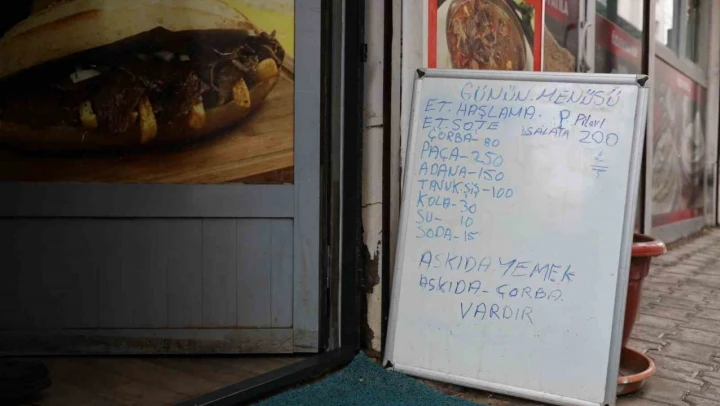 GÜNÜN. MENÜSÜ
ET. HAŞLAMA. Pilavl
ET. SOTE SALATA 200
ÇORBA-80
PAÇA-250
ADANA-150
TAVUKŞİŞ-100
KOLA-30
SU- 10
SODA-15
ASKIDA YEMEK
ASKIDA-ÇORBA.
VARDIR